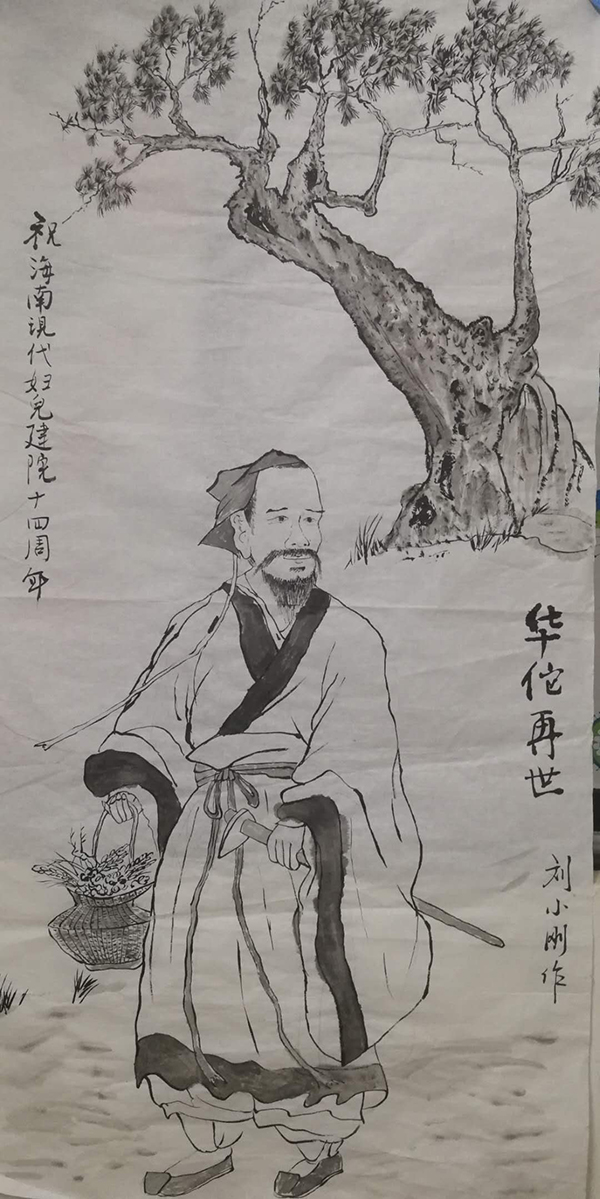 华佗再世
刘小刚作
祝海南現代妇児建院十四周年